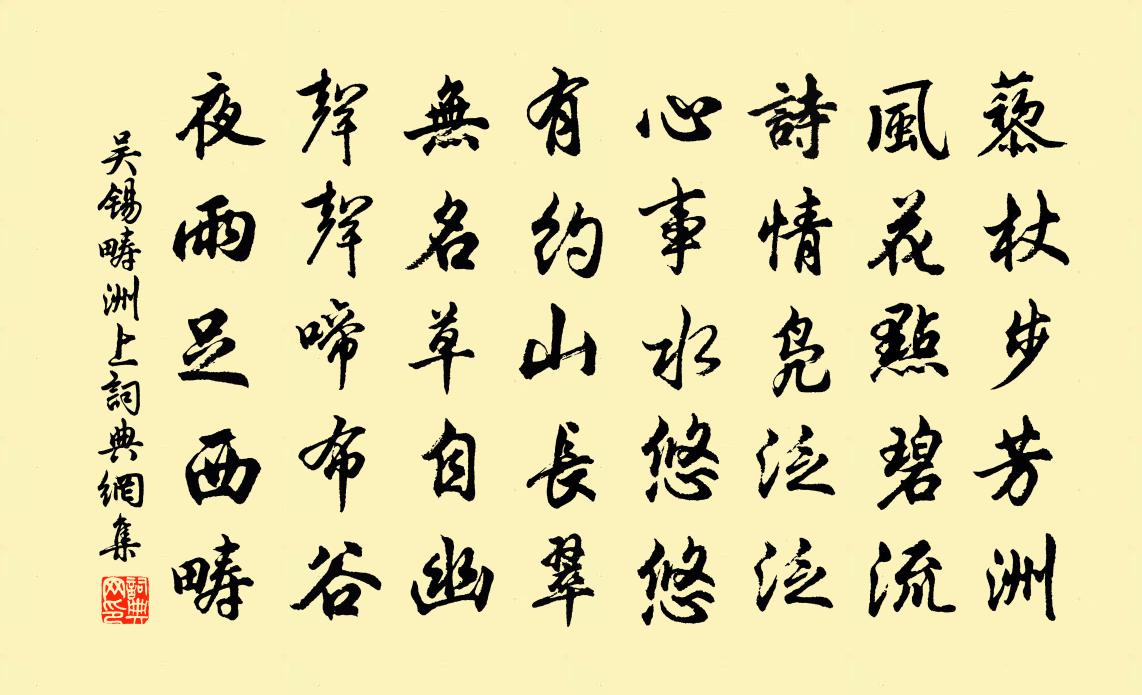 藜杖步芳洲
風花點碧流
詩情鳧泛泛
心事水悠悠
有約山長翠
無名草自幽
聲聲啼布谷
夜雨足西疇
吴錫疇洲上詞典網集
詞典网印